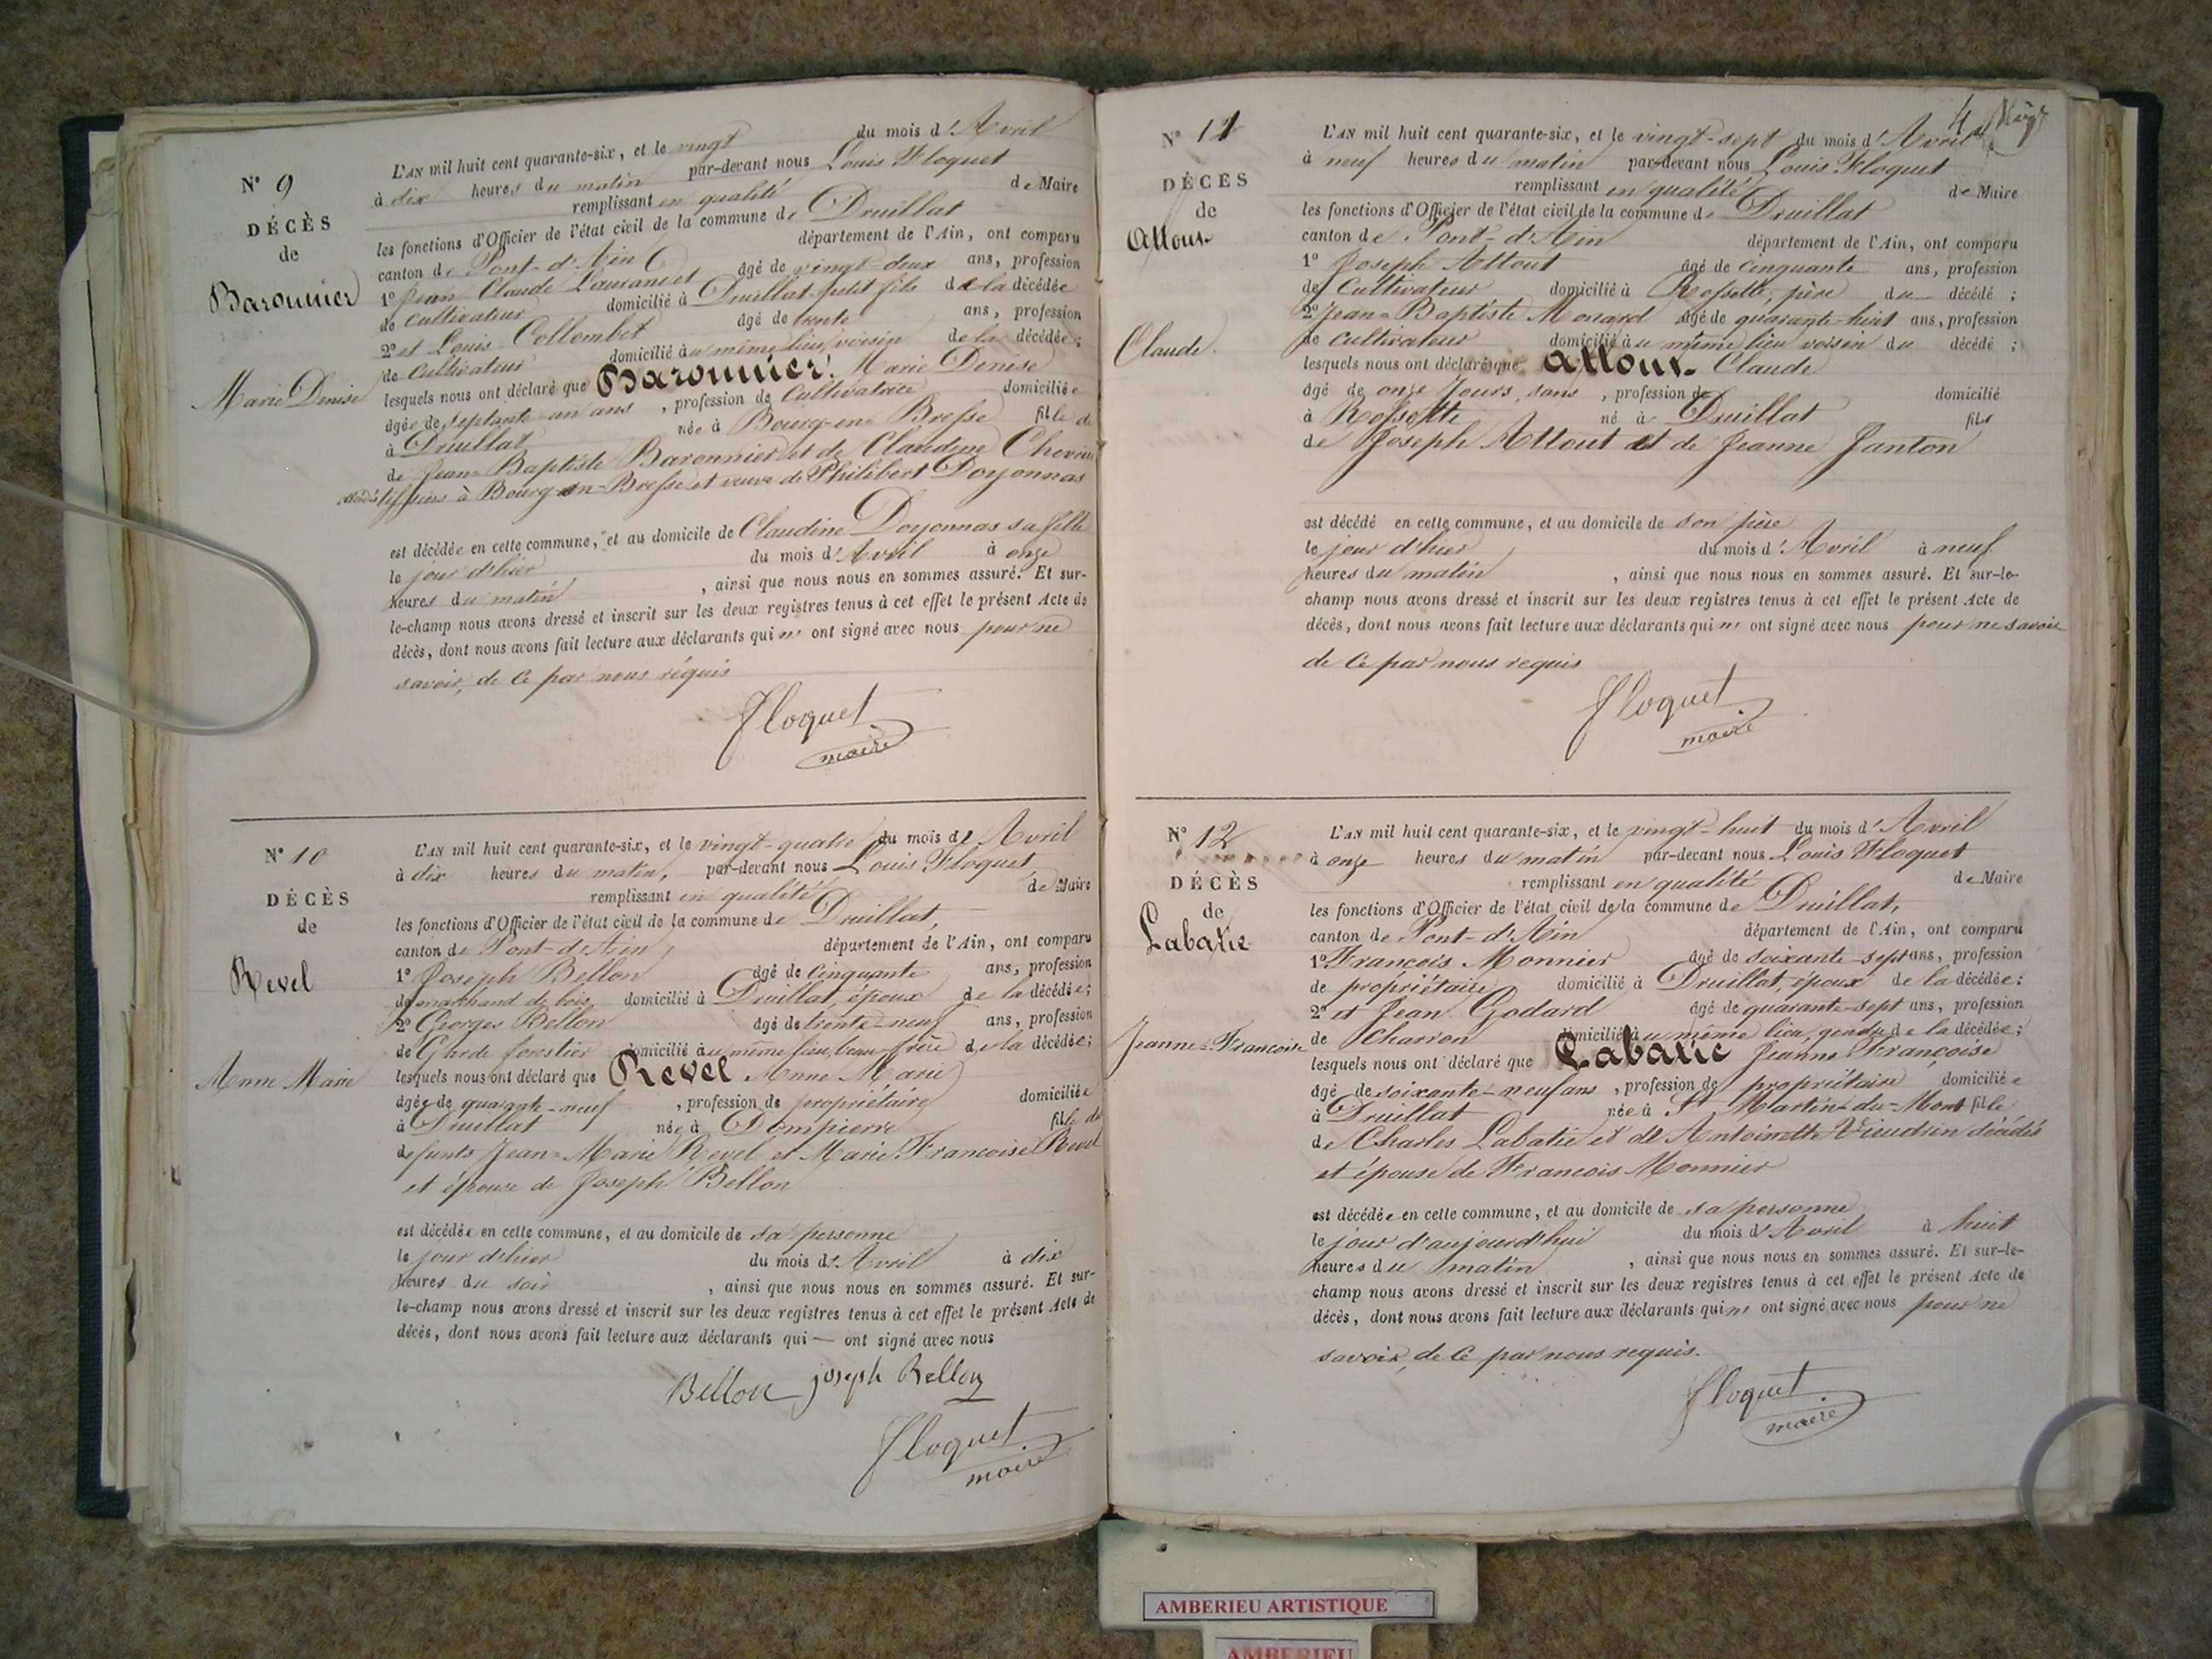 N° 9
DÉCÈS
de
Baronnier
Marie Denise
L'AN mil huit cent quarante-six, et le vingt du mois d'Avril
à dix heures du matin par-devant nous Louis Floquet
remplissant en qualité de Maire
les fonctions d'Officier de l'état civil de la commune de Druillat
canton de Pont-d'Ain département de l'Ain, ont comparu
1° Jean Claude âgé de vingt-deux ans, profession
de cultivateur domicilié à Druillat petit fils de la décédée
2° et Louis Collombet âgé de trente ans, profession
de Cultivateur domicilié au même lieu, voisin de la décédée;
lesquels nous ont déclaré que Baronnier Marie Denise
âgée de septante-un ans, profession de Cultivatrice domiciliée
à Druillat née à Bourg-en-Bresse fille de
de Jean-Baptiste Baronnier et de Claudine
à Bourg-en-Bresse et veuve de Philibert Doyonnas
est décédée en cette commune, et au domicile de Claudine Doyonnas sa fille
le jour d'hier du mois d'Avril à onze
heures du matin, ainsi que nous nous en sommes assuré. Et sur-
le-champ nous avons dressé et inscrit sur les deux registres tenus à cet effet le présent Acte de
décès, dont nous avons fait lecture aux déclarants qui n' ont signé avec nous pour ne
savoir, de ce par nous requis
Floquet
maire
N° 10
DÉCÈS
de
Revel
Anne Marie
L'AN mil huit cent quarante-six, et le vingt-quatre du mois d'Avril
à dix heures du matin, par-devant nous Louis Floquet
remplissant en qualité de Maire
les fonctions d'Officier de l'état civil de la commune de Druillat,
canton de Pont-d'Ain, département de l'Ain, ont comparu
1° Joseph Bellon âgé de Cinquante ans, profession
de marchand de bois, domicilié à Druillat, époux de la décédée;
2° Georges Bellon âgé de trente-neuf ans, profession
de Garde forestier domicilié au même lieu, beau-frère de la décédée;
lesquels nous ont déclaré que Revel Anne Marie
âgée de quarante-neuf, profession de propriétaire domiciliée
à Druillat née à Dompierre fille de
defunts Jean-Marie Revel et Marie Françoise
et épouse de Joseph Bellon
est décédée en cette commune, et au domicile de sa personne
le jour d'hier du mois d'Avril à dix
heures du soir, ainsi que nous nous en sommes assuré. Et sur-
le-champ nous avons dressé et inscrit sur les deux registres tenus à cet effet le présent Acte de
décès, dont nous avons fait lecture aux déclarants qui — ont signé avec nous
Bellon joseph Bellon
Floquet
maire
4
N° 11
DÉCÈS
de
Allout
Claude
L'AN mil huit cent quarante-six, et le vingt-sept du mois d'Avril
à neuf heures du matin par-devant nous Louis Floquet
remplissant en qualité de Maire
les fonctions d'Officier de l'état civil de la commune de Druillat
canton de Pont-d'Ain département de l'Ain, ont comparu
1° Joseph Allout âgé de Cinquante ans, profession
de Cultivateur domicilié à Rossette, père du décédé;
2° Jean-Baptiste Monard âgé de quarante-huit ans, profession
de cultivateur domicilié au même lieu voisin du décédé;
lesquels nous ont déclaré que Allout Claude
âgé de onze Jours, sans, profession de domicilié
à Rossette né à Druillat fils
de Joseph Allout et de Jeanne Janton
est décédé en cette commune, et au domicile de son père
le jour d'hier du mois d'Avril à neuf
heures du matin, ainsi que nous nous en sommes assuré. Et sur-le-
champ nous avons dressé et inscrit sur les deux registres tenus à cet effet le présent Acte de
décès, dont nous avons fait lecture aux déclarants qui n' ont signé avec nous pour ne savoir
de ce par nous requis
Floquet
maire
N° 12
DÉCÈS
de
Labatie
Jeanne-Françoise
L'AN mil huit cent quarante-six, et le vingt-huit du mois d'Avril
à onze heures du matin par-devant nous Louis Floquet
remplissant en qualité de Maire
les fonctions d'Officier de l'état civil de la commune de Druillat,
canton de Pont-d'Ain département de l'Ain, ont comparu
1° François Monnier âgé de soixante-sept ans, profession
de propriétaire domicilié à Druillat, époux de la décédée;
2° et Jean Godard âgé de quarante-sept ans, profession
de Charron domicilié au même lieu, gendre de la décédée;
lesquels nous ont déclaré que Labatie Jeanne Françoise
âgé de soixante-neuf ans, profession de propriétaire domiciliée
à Druillat née à St Martin-du-Mont fille
de Charles Labatie et de Antoinette décédés
et épouse de François Monnier
est décédée en cette commune, et au domicile de sa personne
le jour d'aujourd'hui du mois d'Avril à huit
heures du matin, ainsi que nous nous en sommes assuré. Et sur-le-
champ nous avons dressé et inscrit sur les deux registres tenus à cet effet le présent Acte de
décès, dont nous avons fait lecture aux déclarants qui n' ont signé avec nous pour ne
savoir, de ce par nous requis.
Floquet
maire
AMBERIEU ARTISTIQUE
AMBERIEU